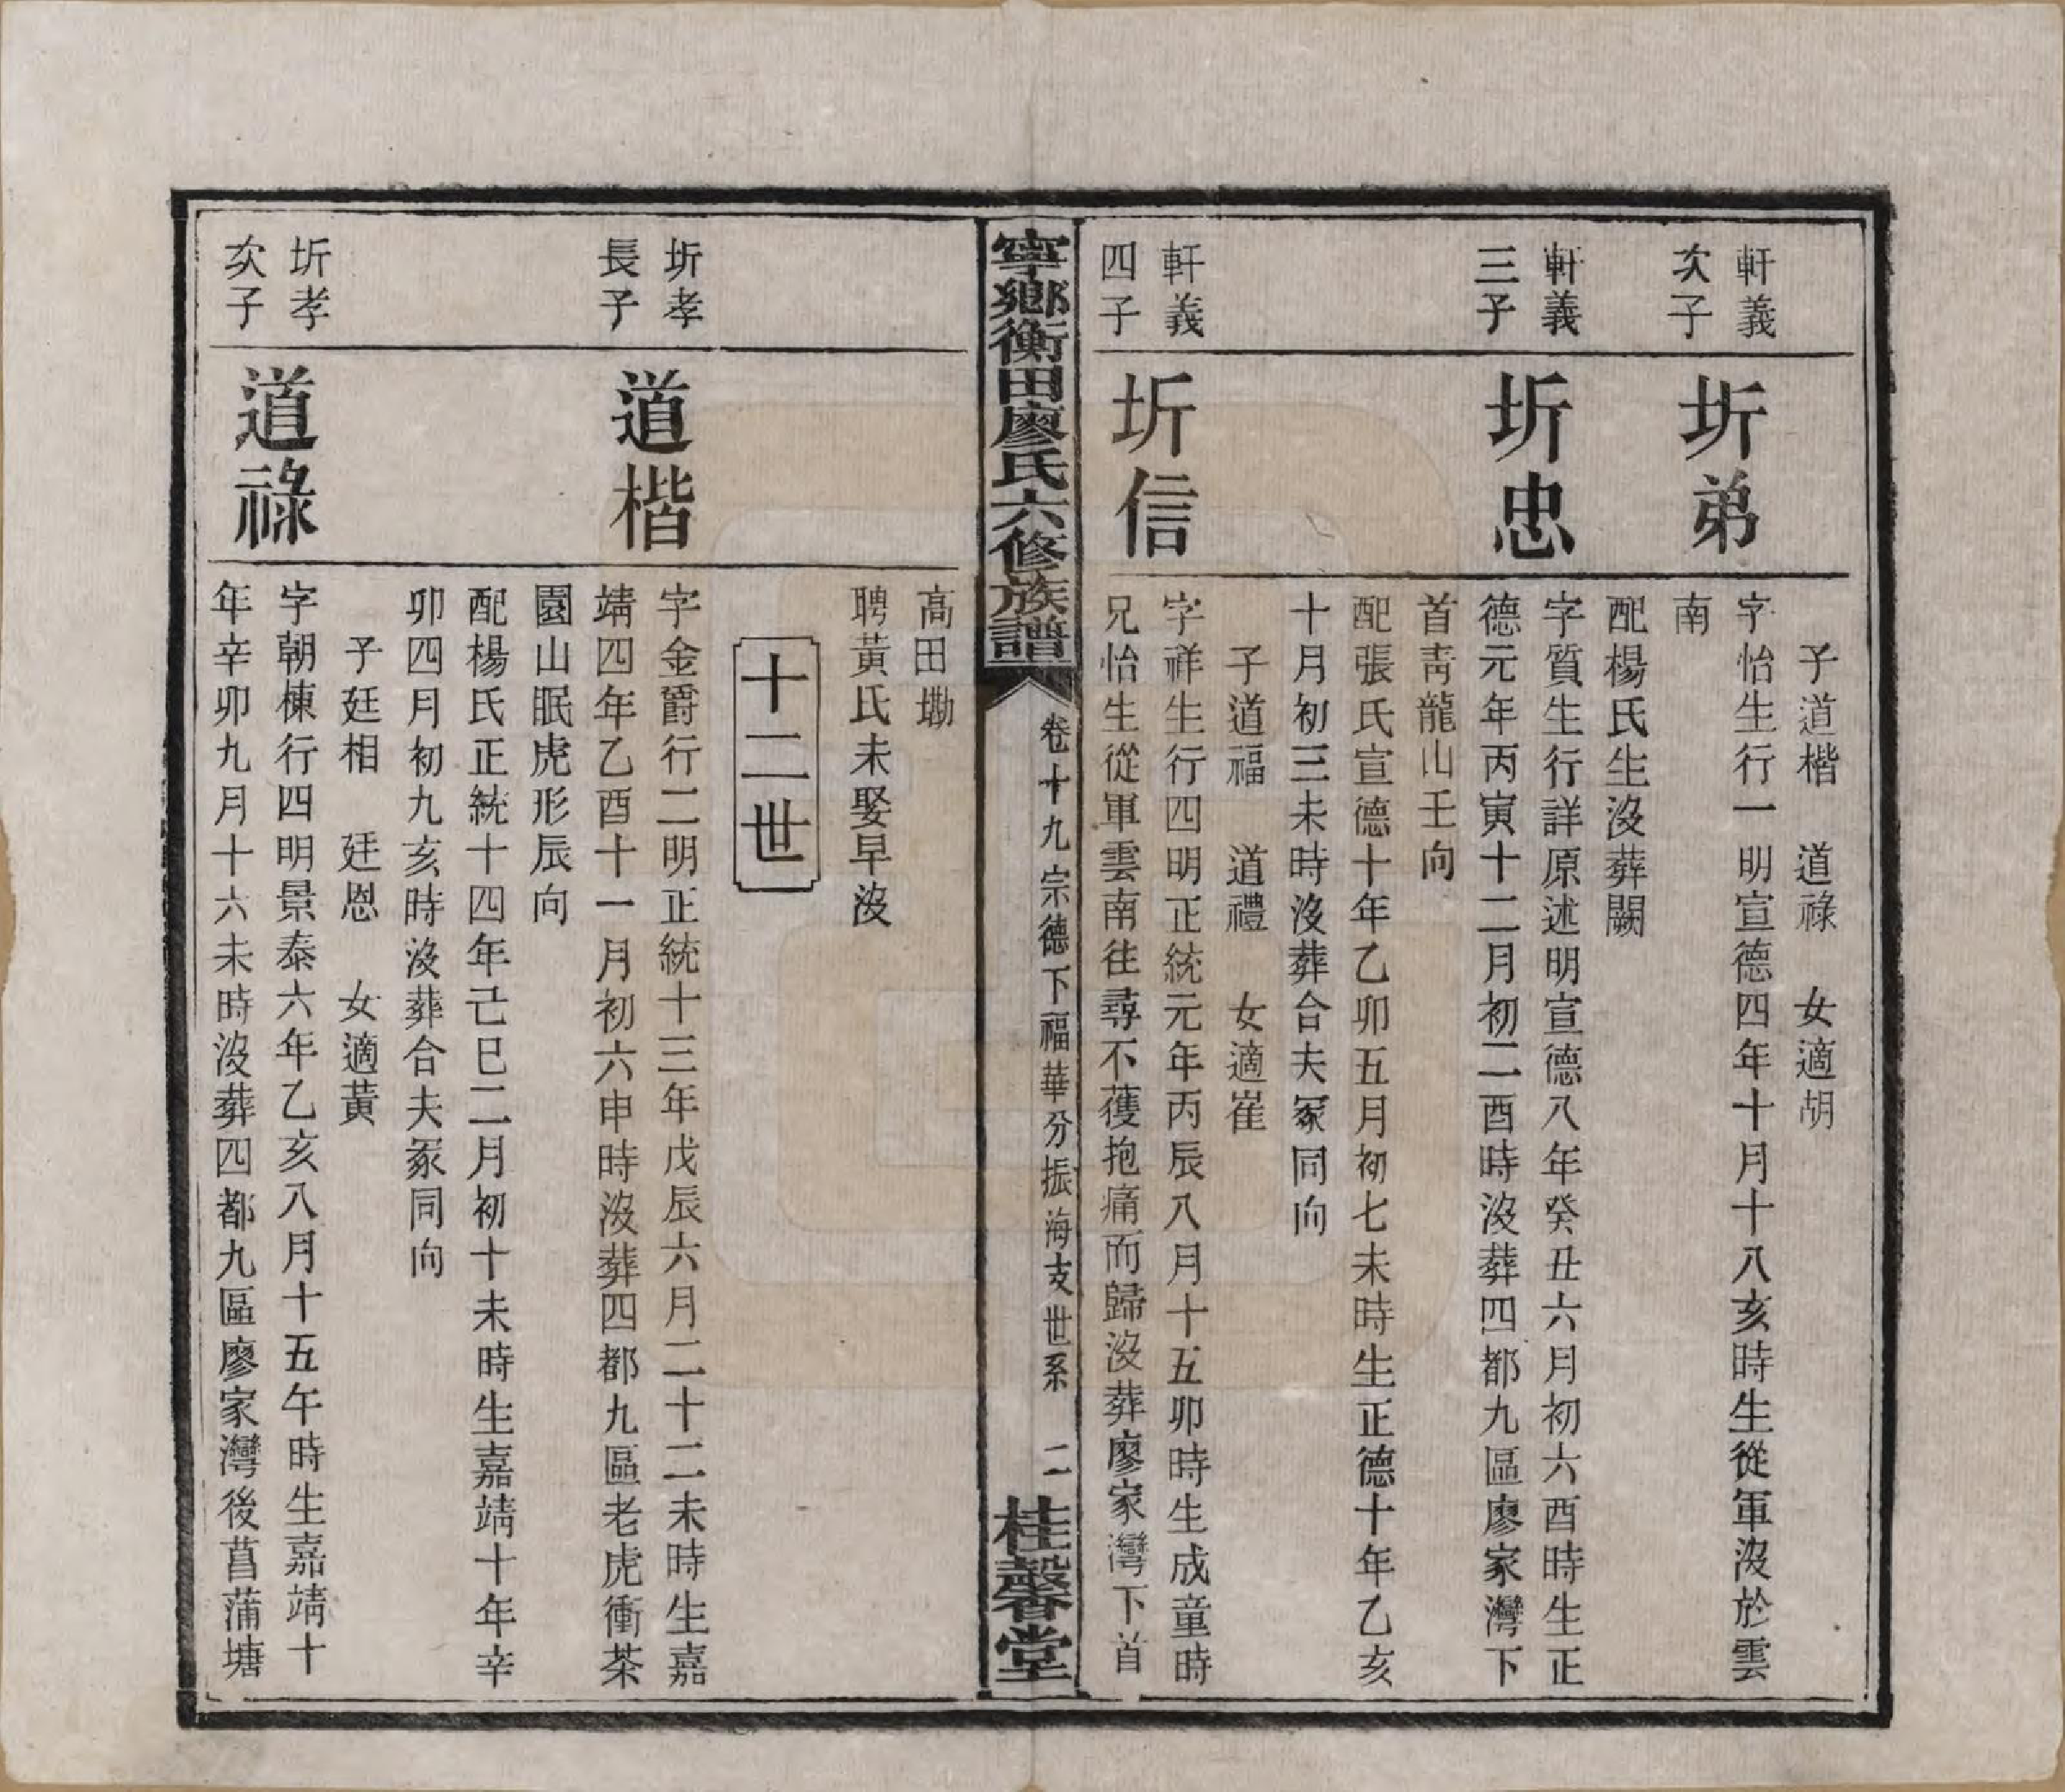 子道楷　道祿　女適胡
軒義
次子
圻弟
字怡生行一明宣德四年十月十八亥時生從軍沒於雲
南
配楊氏生沒葬闕
軒義
三子
圻忠
字質生行詳原述明宣德八年癸丑六月初六酉時生正
德元年丙寅十二月初二酉時沒葬四都九區廖家灣下
首靑龍山壬向
配張氏宣德十年乙卯五月初七未時生正德十年乙亥
十月初三未時沒葬合夫冢同向
子道福　道禮　女適崔
軒義
四子
圻信
字祥生行四明正統元年丙辰八月十五卯時生成童時
兄怡生從軍雲南往尋不獲抱痛而歸沒葬廖家灣下首
寧鄉衡田廖氏六修族譜
卷十九宗德下福華分振海支世系　二
桂馨堂
高田墈
聘黃氏未娶早沒
十二世
圻孝
長子
道楷
字金爵行二明正統十三年戊辰六月二十二未時生嘉
靖四年乙酉十一月初六申時沒葬四都九區老虎衝茶
園山眠虎形辰向
配楊氏正統十四年己巳二月初十未時生嘉靖十年辛
卯四月初九亥時沒葬合夫冢同向
子廷相　廷恩　女適黃
圻孝
次子
道祿
字朝棟行四明景泰六年乙亥八月十五午時生嘉靖十
年辛卯九月十六未時沒葬四都九區廖家灣後菖蒲塘